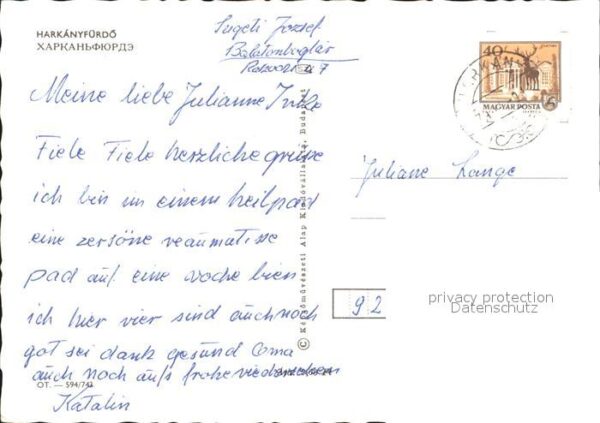 HARKÁNYFÜRDŐ
ХАРКАНЬФЮРДЭ
József
Balatonboglár
7
Meine liebe Julianne
Fiele Fiele herzliche grüse
ich bin in einem heilpad
eine zersöne reaumatisse
pad auf eine woche bien
ich hier vier sind auch noch
got sei dank gesund Coma
auch noch aufs frohe
Katalin
OT. — 594/742
© Képzőművészeti Alap Kiadóvállalata, Budapest
40
MAGYAR POSTA
Juliane Lange
92
privacy protection
Datenschutz